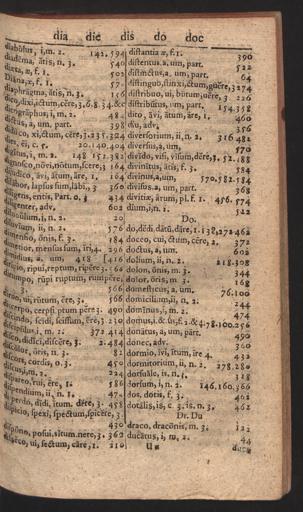 dia die dis do doc
diabŏlus, i, m. 2. 142. 594
diadēma, ătis, n. 3. 540
diæta, æ, f. 1. 502
Diāna, æ, f. 1. 57
diaphrăgma, ătis, n. 3. 196
dico, dixi, ictum, cĕre, 3. 6. 8. 34. &c
484
dictus, a, um, part. 398
dies, ēi, c. 5. 20. 140. 404
148 152. 382
dignosco, nōvi, nōtum, scere, 3 164
dijudico, āvi, ātum, āre, 1. 164
dilābor, lapsus sum, lābi, 3 360
diligens, entis, Part. 0. 3 434
diligenter, adv. 602
dilucŭlum, i, n. 2. 20
diluvium, ii, n. 2. 576
dimensio, ōnis, f. 3. 184
dimetior, mensus sum, īri, 4. 296
dimidius, a, um 418 [416
diripio, ripui, reptum, ripĕre 3.
dirumpo, rūpi ruptum, rumpĕre,
diruo, ui, rŭtum, ĕre, 3. 566
discerpo, cerpsi ptum pĕre 3.
discindo, scidi, scissum, ĕre, 3. 230
discipŭlus, i, m. 2. 372 414
disco, didici, discĕre, 3. 2. 484
discŏlor, ōris, n. 3. 82
discors, cordis, o. 3. 450
discus, i, m. 2. 224
dispareo, rui, ēre, 1. 586
dispendium, ii, n. 1. 457
disperdo, didi, itum, dĕre, 3. 458
dispicio, spexi, spectum, spicĕre, 3
430
dispōno, posui, situm. nere, 3. 362
disseco, ui, sectum, cāre, 1. 210
distantia æ, f. 1. 390
distentus, a, um, part. 522
distinctus, a, um, part. 64
distinguo, stinxi, ctum, guĕre, 3 274
distribuo, ui, būtum, uĕre, 3 226
distribūtus, um, part. 154. 358
dito, āvi, ātum, āre, 1. 460
diu, adv. 356
diversorium, ii, n. 2. 316 482
diversus, a, um, 570
divĭdo, visi, visum, dĕre, 3. 52. 188
divinĭtas, ātis, f. 3. 584
divinus, a, um, 570. 582. 584
divisus, a, um, part. 368
divitiæ, ārum, pl. f. 1. 456. 574
dium, i, n. 1. 522
Do.
do, dĕdi, dătū, dăre, 1. 138, 272 462
doceo, cui, ctum, cēre, 2. 372
doctus, a, um. 602
dolium, ii, n. 2. 218. 308
dolon, ōnis, m. 3. 344
dolor, ōris, m. 3. 168
domesticus, a, um. 76. 100
domicilium, ii, n. 2. 244
domĭnus, i, m. 2. 474
domus, i, & ûs, f. 2. & 4. 78. 100. 256
donārus, a, um, part. 490
donec, adv. 360
dormio, īvi, ītum, ire 4. 432
dormitorium, ii, n. 2. 278. 280
dorsuale, is, n. 1. 128
dorsum, i, n. 2. 146. 160. 366
dos, dotis, f. 3. 462
dotālis, is, c. 3. is, n. 3. 462
Dr. Du
draco, dracōnis, m. 3. 122
ducātus, i, m, 2. 44